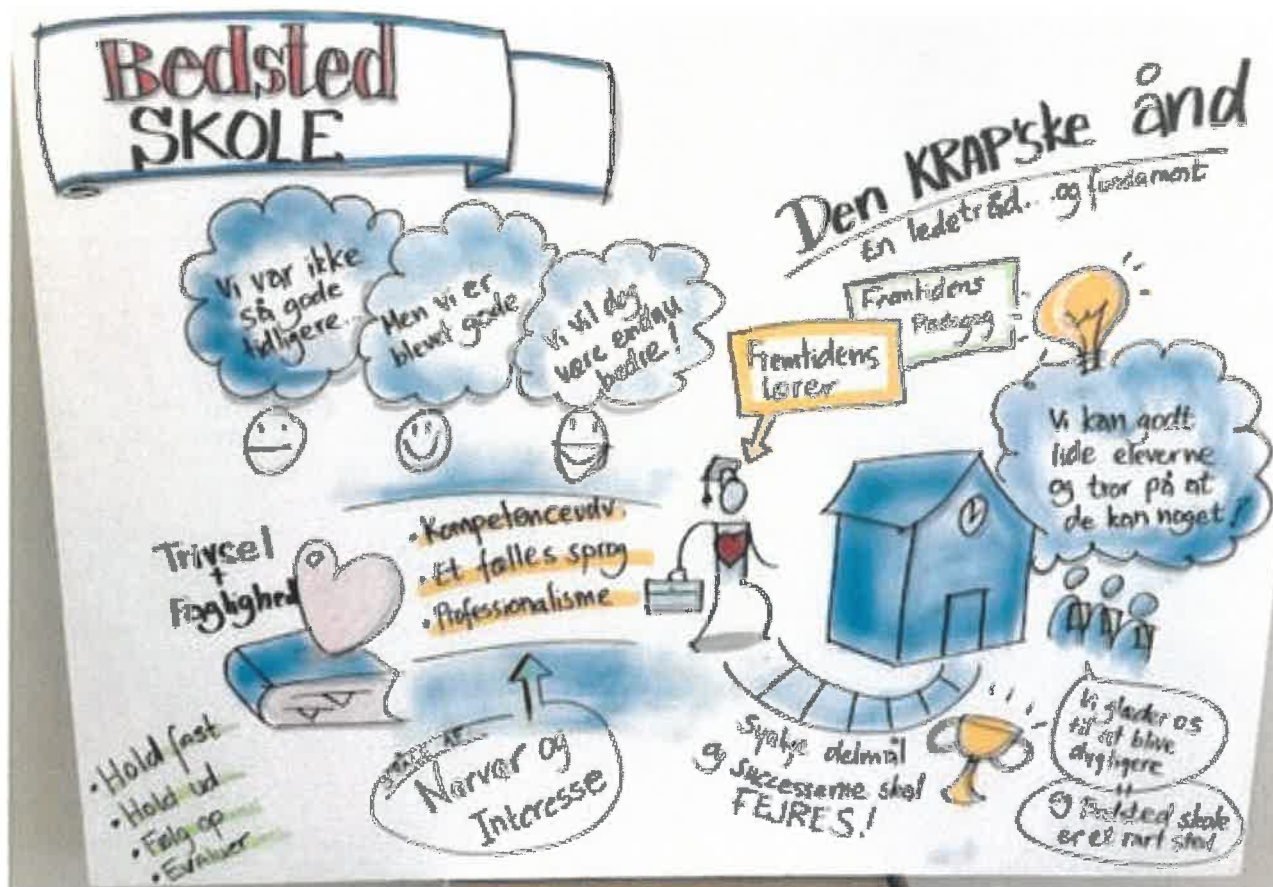 Bedsted
SKOLE
Den KRAP'ske ånd
En ledetråd... og fundament
Vi var ikke
så gode
tidligere...
Men vi er
blevet gode
Vi vil dog
være endnu
bedre!
Fremtidens
Pædagog
Fremtidens
lærer
Vi kan godt
lide eleverne
og tror på at
de kan noget!
Trivsel
+
Faglighed
• Kompetenceudv.
• Et fælles sprog
• Professionalisme
• Hold fast
• Hold ud
• Følg op
• Evaluer
Nærvær og
Interesse
Synlige delmål
og successerne skal
FEJRES!
Vi glæder os
til at blive
dygtigere
og Bedsted skole
er et rart sted